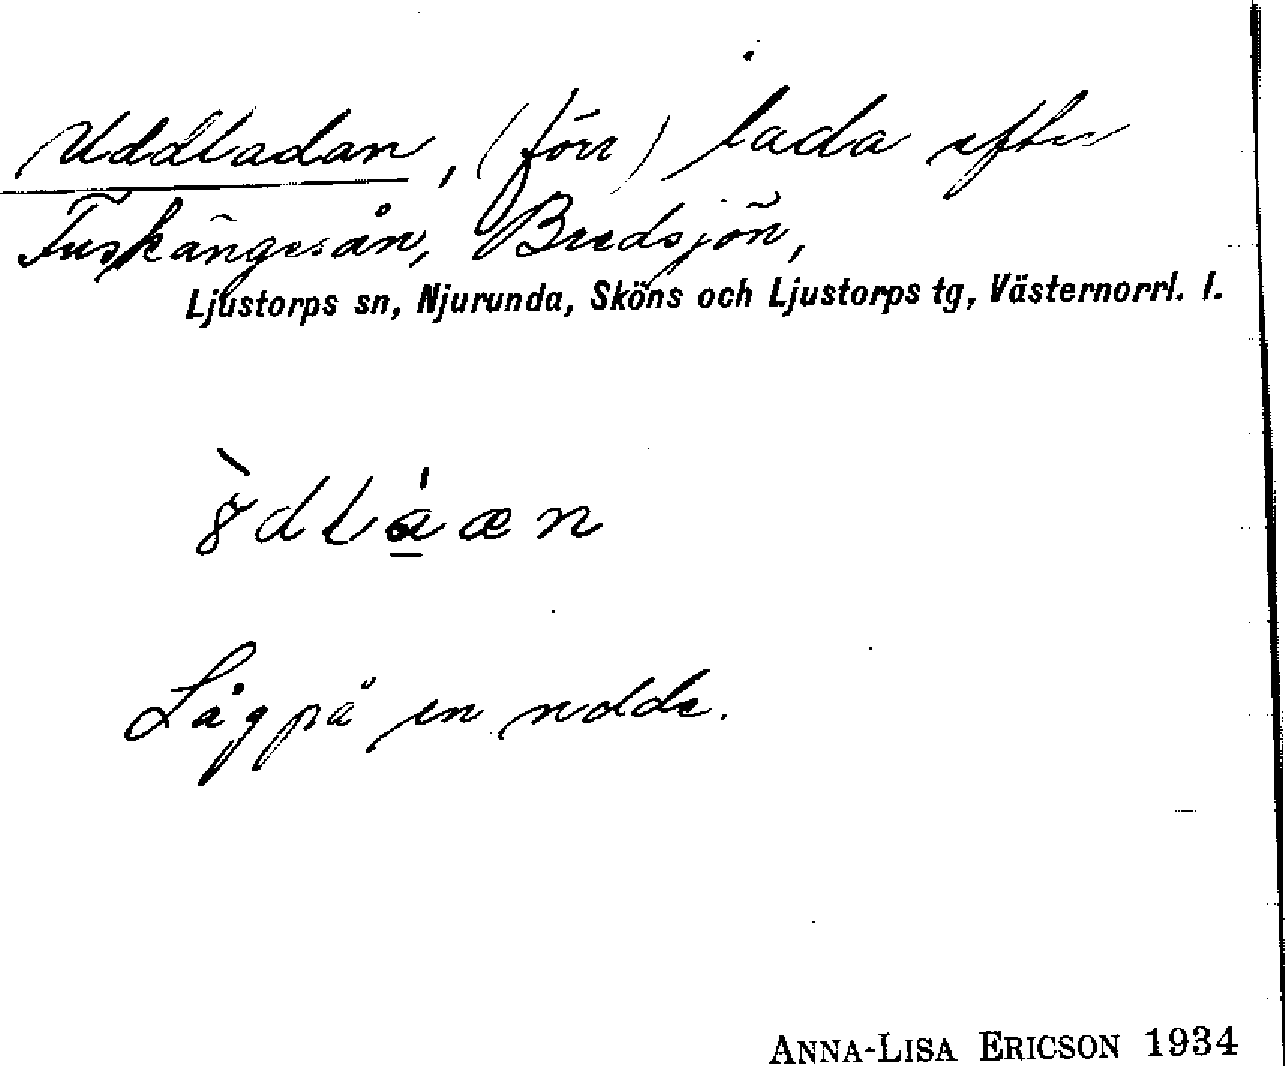 Uddladan, (förr) lada efter
Tuskängesån, Bredsjön,
Ljustorps sn, Njurunda, Sköns och Ljustorps tg, Västernorrl. l.
Låg på en udde.
ANNA-LISA ERICSON 1934